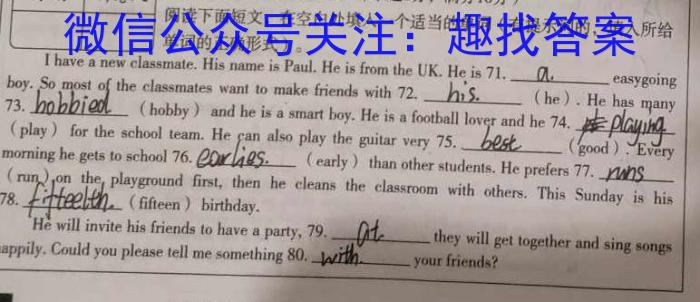 阅读下面短文,在空白处填入一个适当的
入所给
微信公众号关注:趣找答案
I have a new classmate. His name is Paul. He is from the UK. He is 71. a. easygoing
boy. So most of the classmates want to make friends with 72. his. (he). He has many
73. hobbied (hobby) and he is a smart boy. He is a football lover and he 74. playing
(play) for the school team. He can also play the guitar very 75. best (good). Every
morning he gets to school 76. earlies. (early) than other students. He prefers 77. runs
(run) on the playground first, then he cleans the classroom with others. This Sunday is his
78. fifteelth. (fifteen) birthday.
He will invite his friends to have a party, 79. at. they will get together and sing songs
appily. Could you please tell me something 80. with. your friends?